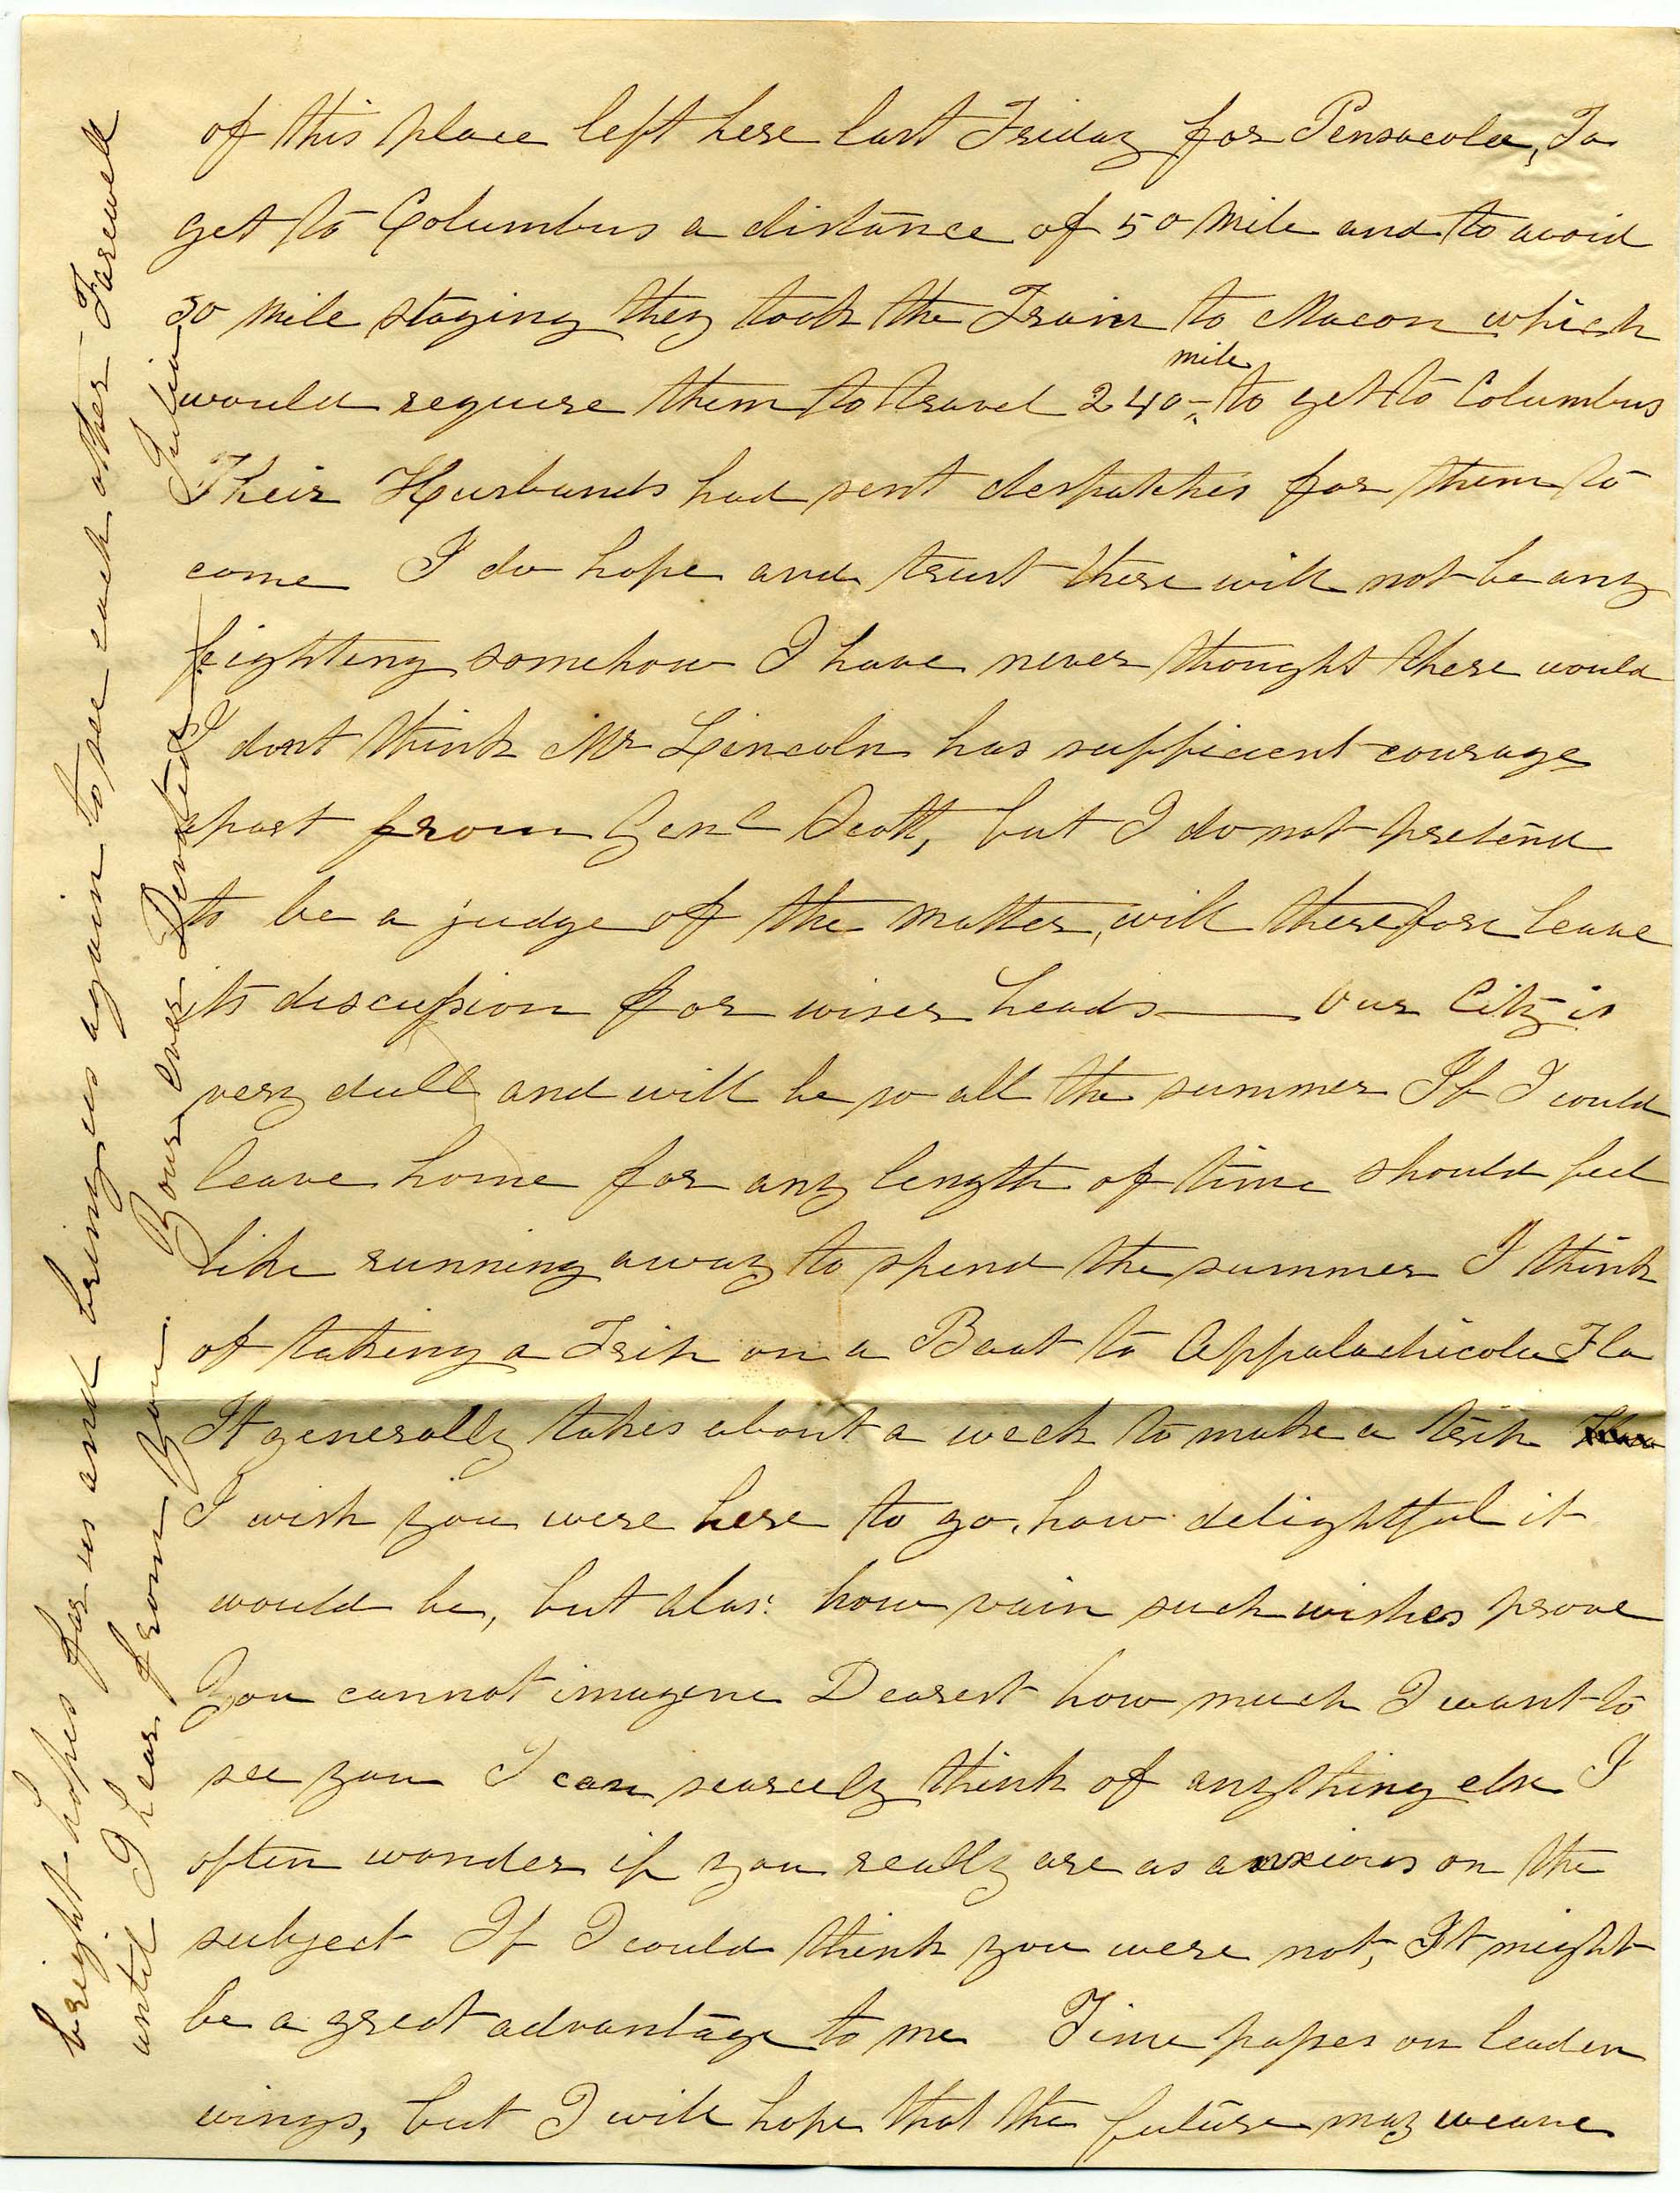 of this place left here last Friday for Pensacola, To
get to Columbus a distance of 50 mile and to avoid
30 mile staging they took the Train to Macon which
would requere them to travel 240- mile to get to Columbus
Their Husbands had sent despatches for them to
come I do hope and trust there will not be any
fighting somehow I have never thought there would
I dont think Mr Lincoln has sufficient courage
apart from Genl Scott, but I do not pretend
to be a judge of the matter, will therefore leave
its discussion for wiser heads — Our City is
very dull and will be so all the summer If I could
leave home for any length of time should feel
like running away to spend the summer I think
of taking a Trip on a Boat to Appalachicola Fla
It generally takes about a week to make a trip
I wish you were here to go, how delightful it
would be, but alas! how vain such wishes prove
You cannot imagine Dearest how much I want to
see you I can scarcely think of anything else I
often wonder if you really are as anxious on the
subject If I could think you were not, It might
be a great advantage to me Time passes on leaden
wings, but I will hope that the future may weave
bright hopes for us and bring us again to see each other Farewell
until I hear from You. Your ever Devoted — Julia